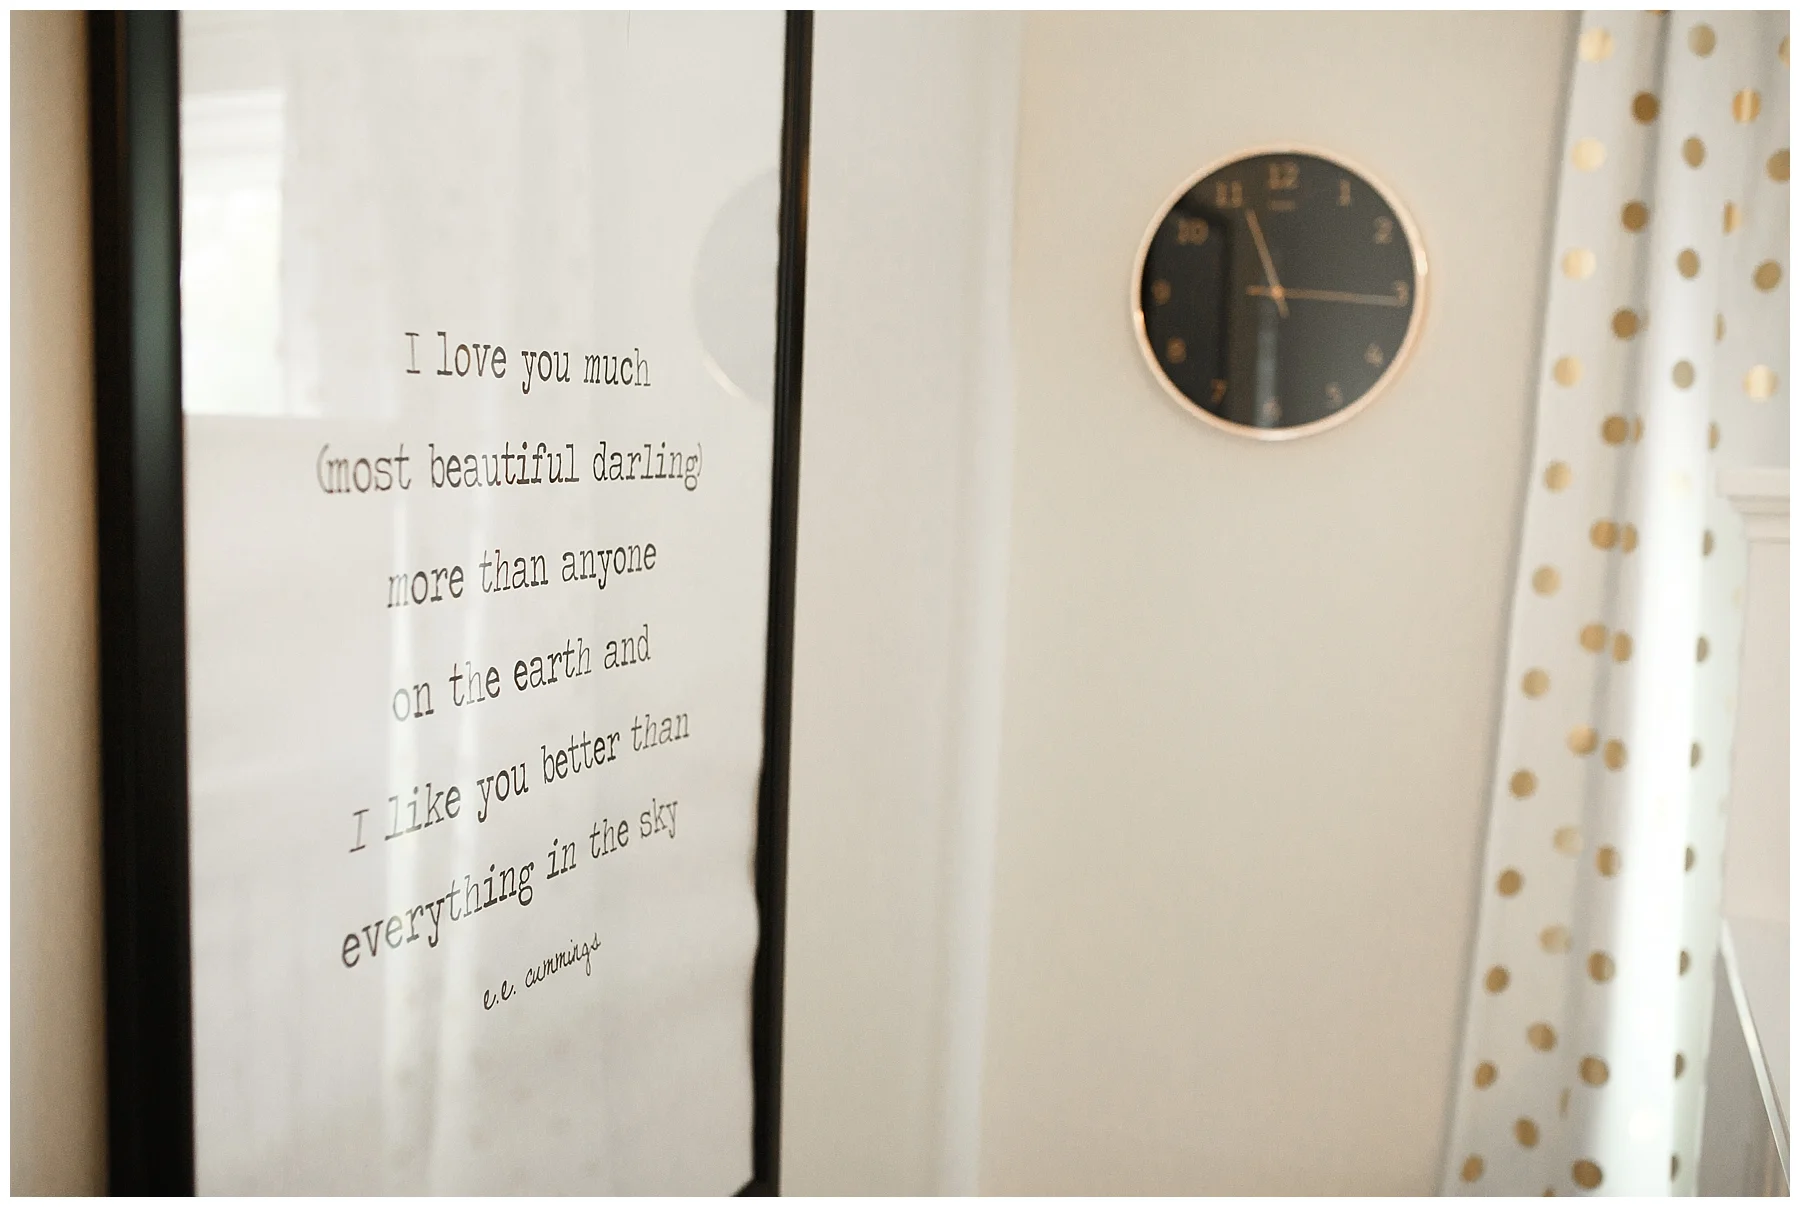 I love you much
(most beautiful darling)
more than anyone
on the earth and
I like you better than
everything in the sky
e.e. cummings
12
1
2
3
4
5
6
7
8
9
10
11